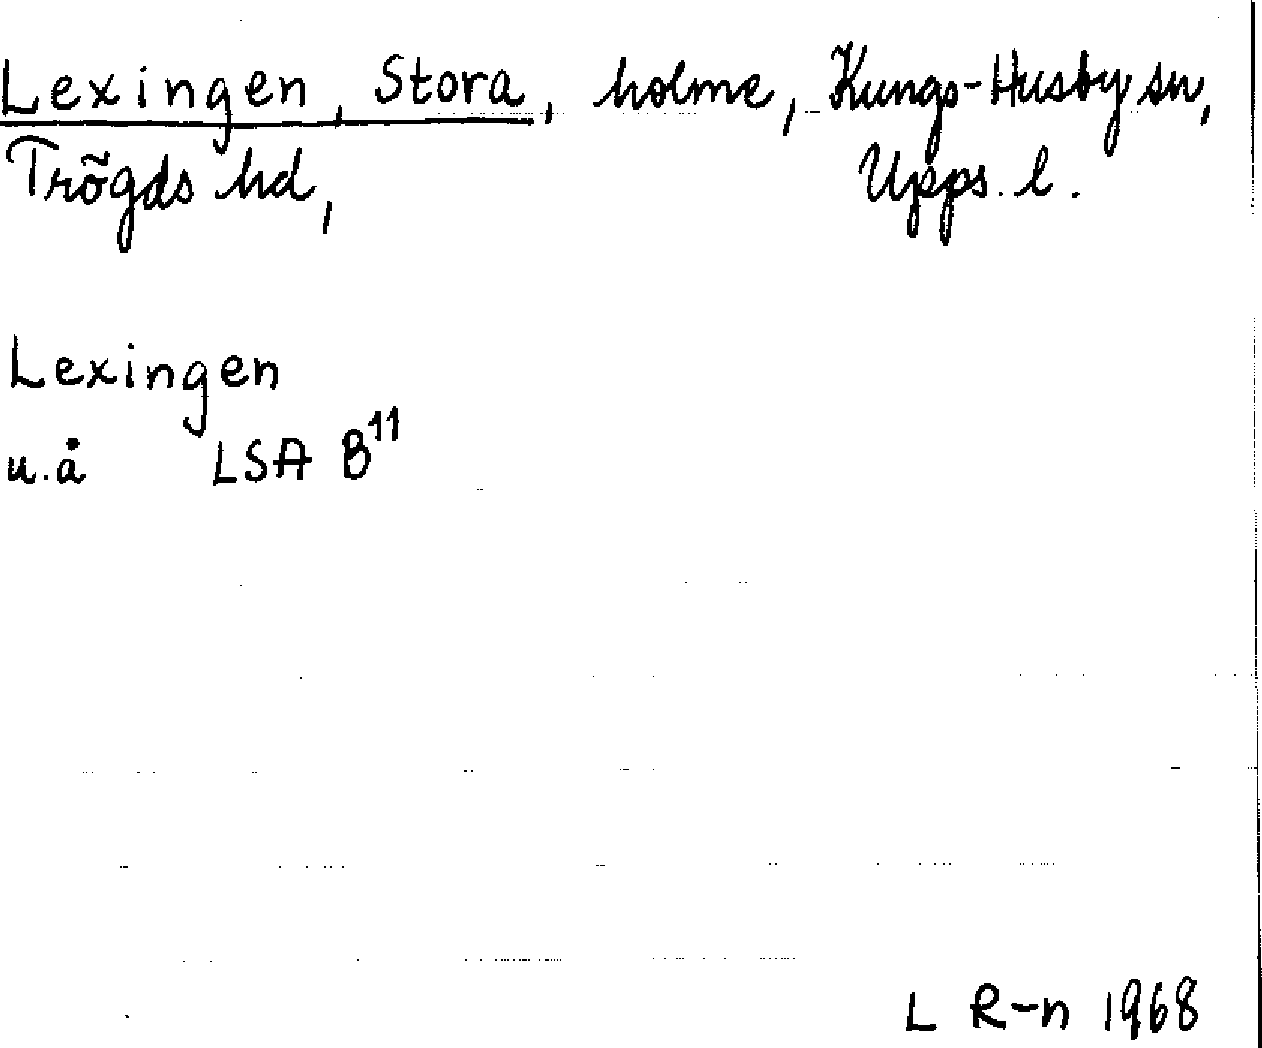 Lexingen, Stora, holme, Kungs-Husby sn,
Trögds hd, Upps. l.
Lexingen
u.å LSA B¹¹
L R-n 1968